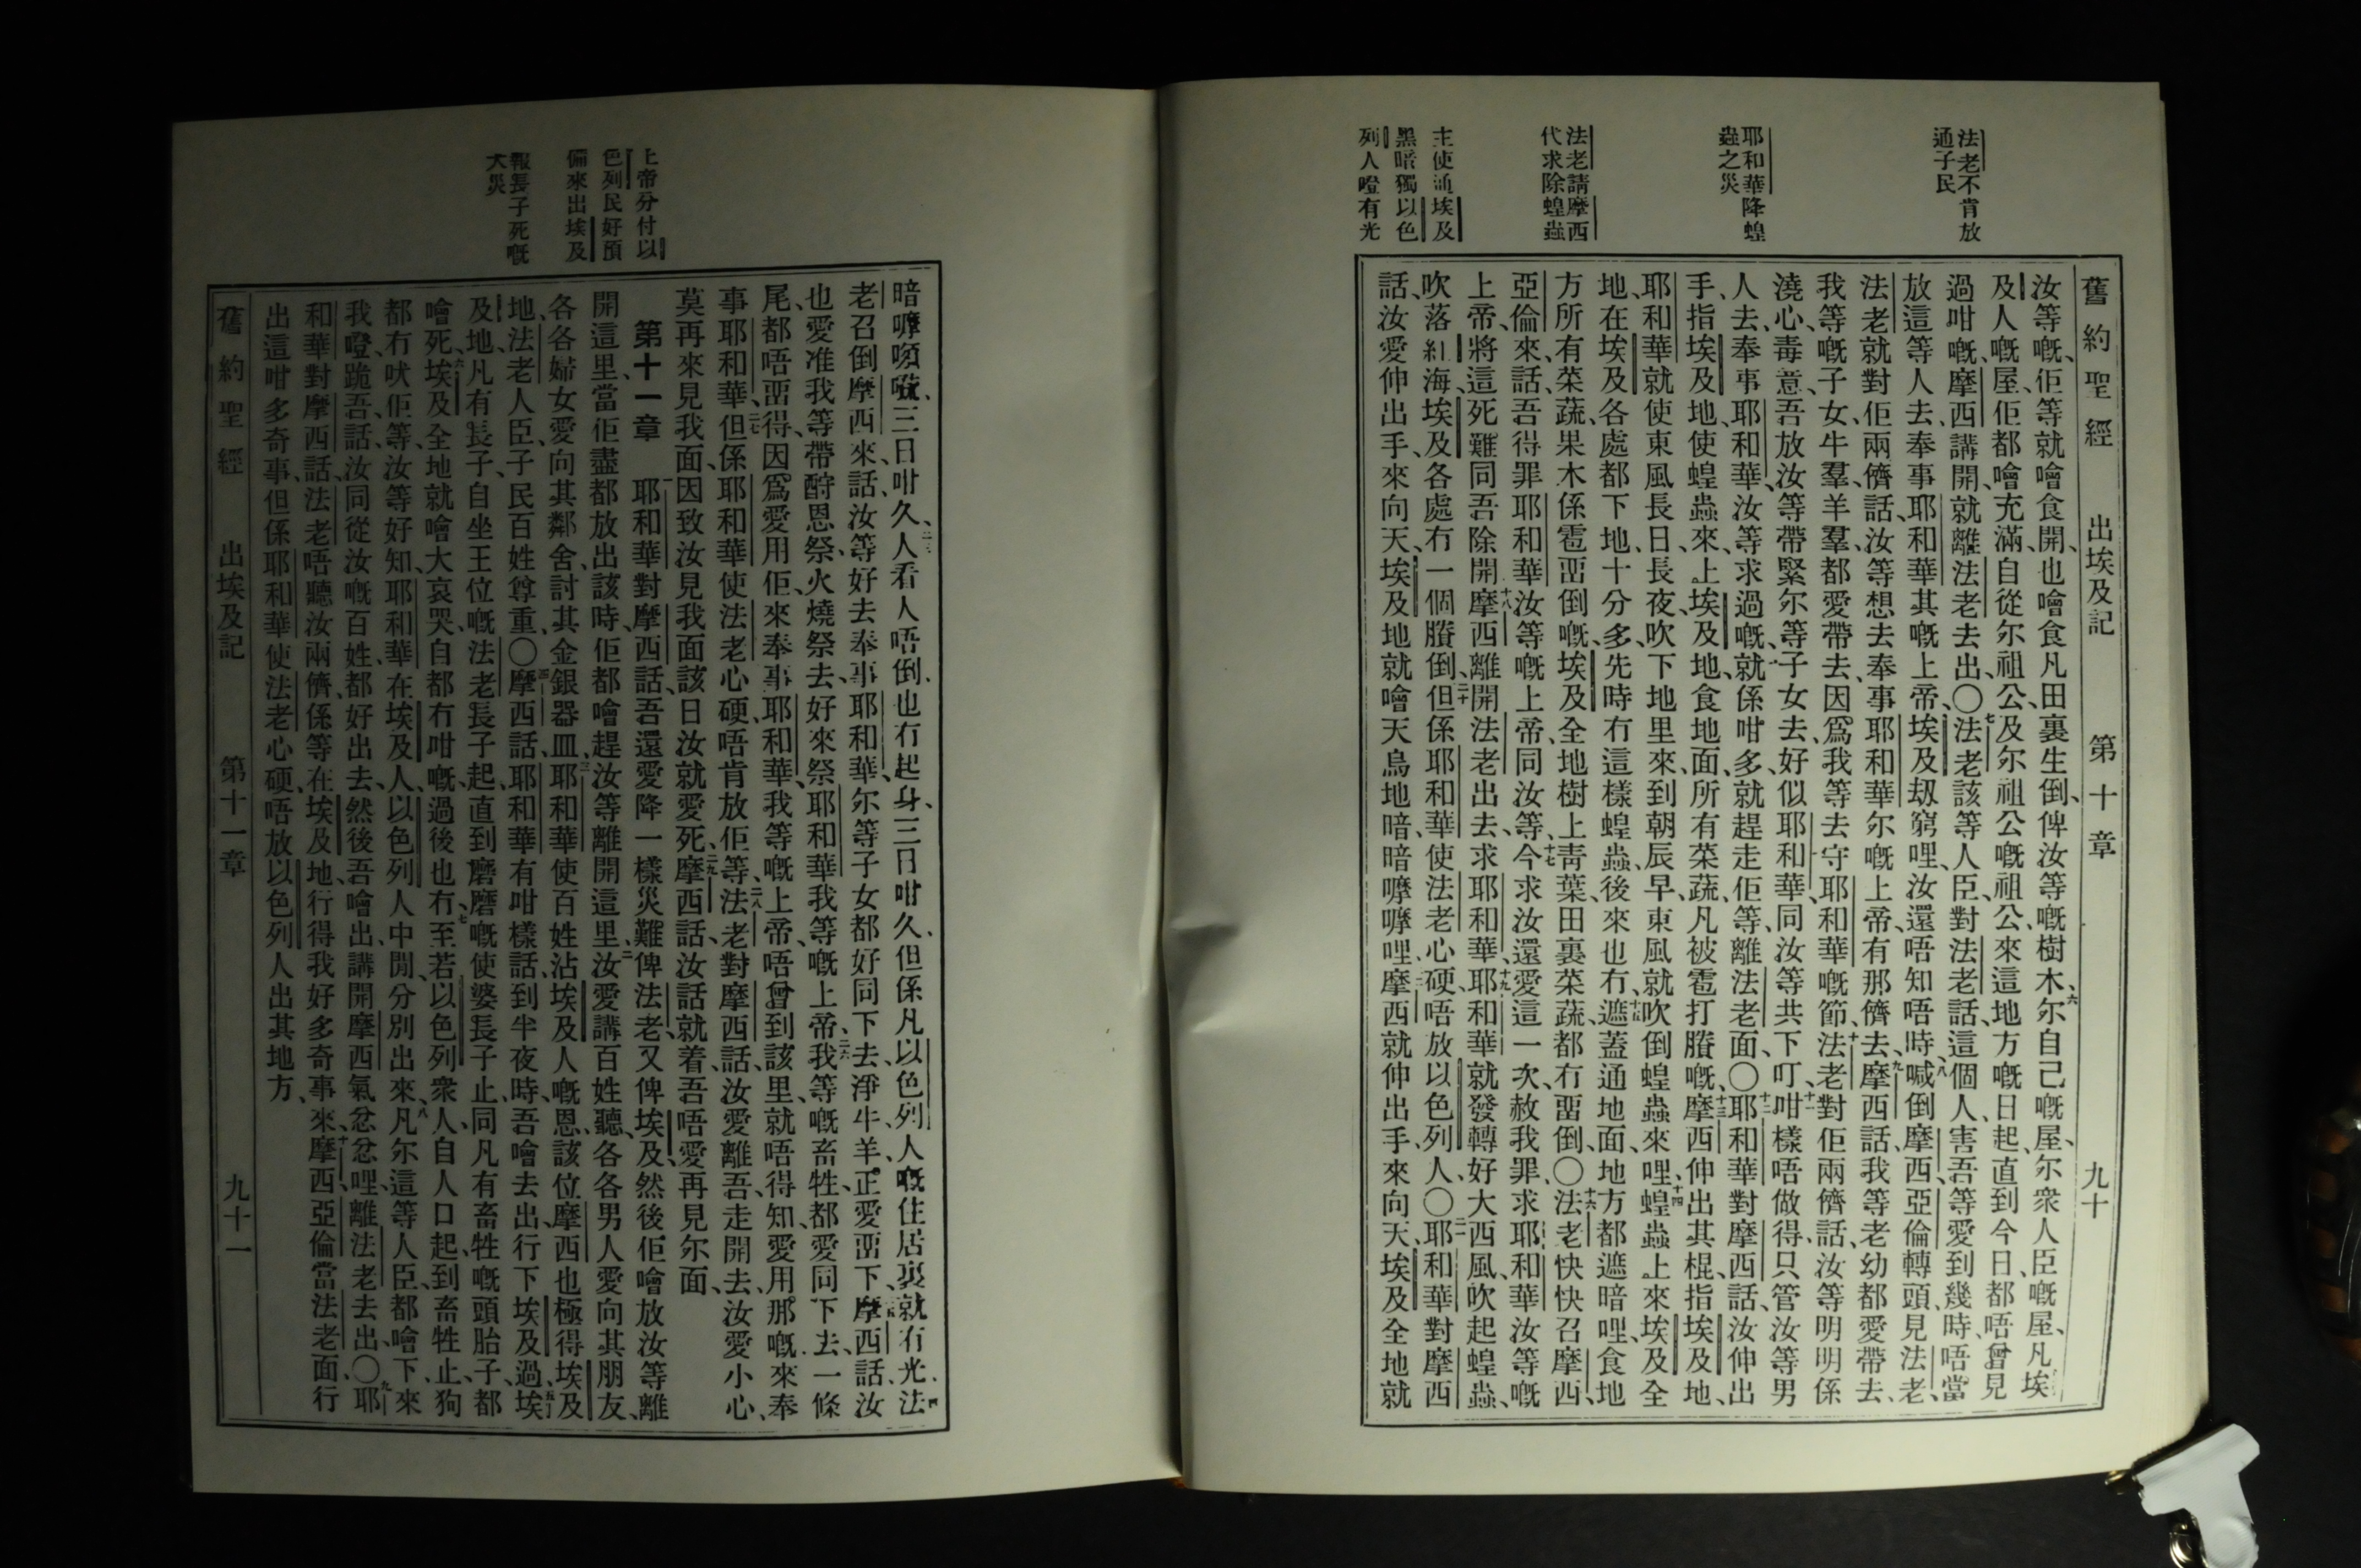 法老不肯放
通子民
耶和華降蝗
蟲之災
法老請摩西
代求除蝗蟲
主使通埃及
黑暗獨以色
列人噔有光
舊約聖經 出埃及記 第十章 九十
汝等嘅、佢等就噲食開、也噲食凡田裏生倒、俾汝等嘅樹木、六尔自己嘅屋、尔衆人臣嘅屋、凡埃
及人嘅屋、佢都噲充滿、自從尔祖公、及尔祖公嘅祖公、來這地方嘅日起、直到今日都唔曾見
過咁嘅、摩西講開、就離法老去出、〇七法老該等人臣對法老話、這個人害吾等愛到幾時、唔當
放這等人去奉事耶和華其嘅上帝、埃及刼窮哩、汝還唔知唔時、八喊倒摩西、亞倫轉頭、見法老、
法老就對佢兩儕話、汝等想去奉事耶和華尔嘅上帝、有那儕去、九摩西話、我等老幼都愛帶去、
我等嘅子女、牛羣、羊羣、都愛帶去、因爲我等去守耶和華嘅節、十法老對佢兩儕話、汝等明明係
澆心、毒意、吾放汝等帶緊尔等子女去、好似耶和華、同汝等共下叮、十一咁樣唔做得、只管汝等男
人去奉事耶和華、汝等求過嘅、就係咁多、就趕走佢等、離法老面、〇十二耶和華對摩西話、汝伸出
手、指埃及地、使蝗蟲來、上埃及地、食地面、所有菜蔬、凡被雹打賸嘅、十三摩西伸出其棍、指埃及地、
耶和華就使東風長日、長夜、吹下地里來、到朝辰早、東風就吹倒蝗蟲來哩、十四蝗蟲上來埃及全
地、在埃及各處都下地、十分多、先時冇這樣蝗蟲、後來也冇、十五遮蓋通地面、地方都遮暗哩、食地
方所有菜蔬、果木係雹畱倒嘅、埃及全地樹上靑葉、田裏菜蔬、都冇畱倒、〇十六法老快快召摩西、
亞倫來、話、吾得罪耶和華汝等嘅上帝、同汝等、十七今求汝還愛這一次、赦我罪、求耶和華汝等嘅
上帝、將這死難同吾除開、十八摩西離開法老出去、求耶和華、十九耶和華就發轉好大西風、吹起蝗蟲、
吹落紅海、埃及各處冇一個賸倒、二十但係耶和華使法老心硬、唔放以色列人、〇二一耶和華對摩西
話、汝愛伸出手、來向天、埃及地就噲天烏地暗、暗嚤嚤哩、二二摩西就伸出手、來向天、埃及全地就
上帝分付以
色列民好預
偹來出埃及
報長子死嘅
大災
暗嚤嚤三日咁久、二三人看人唔倒、也冇起身、三日咁久、但係凡以色列人嘅住居裏就有光、二四法
老召倒摩西來、話、汝等好去奉事耶和華、尔等子女都好同下去、淨牛羊、正愛畱下、二五摩西話、汝
也愛准我等帶酧恩祭、火燒祭去、好來祭耶和華我等嘅上帝、二六我等嘅畜牲、都愛同下去、一條
尾、都唔畱得、因爲愛用佢、來奉事耶和華、我等嘅上帝、唔曾到該里、就唔得知、愛用那嘅來奉
事耶和華、二七但係耶和華使法老心硬、唔肯放佢等、二八法老對摩西話、汝愛離吾、走開去、汝愛小心、
莫再來見我面、因致汝見我面該日汝就愛死、二九摩西話、汝話就着、吾唔愛再見尔面、
第十一章 一耶和華對摩西話、吾還愛降一樣災難俾法老、又俾埃及、然後佢噲放汝等離
開這里、當佢盡都放出該時、佢都噲趕汝等離開這里、二汝愛講百姓聽、各各男人愛向其朋友、
各各婦女愛向其鄰舍、討其金銀器皿、三耶和華使百姓沾埃及人嘅恩、該位摩西也極得埃及
地、法老人臣、子民百姓尊重、〇四摩西話、耶和華有咁樣話、到半夜時、吾噲去出、行下埃及過、五埃
及地、凡有長子、自坐王位嘅法老長子起、直到磨磨嘅使婆長子止、同凡有畜牲嘅頭胎子、都
噲死、六埃及全地就噲大哀哭、自都冇咁嘅、過後也冇、七至若以色列衆人、自人口起、到畜牲止、狗
都冇吠佢等、汝等好知、耶和華在埃及人、以色列人中間、分別出來、八凡尔這等人臣、都噲下來
我噔、跪吾、話、汝同從汝嘅百姓、都好出去、然後吾噲出、講開摩西氣忿忿哩、離法老去出、〇九耶
和華對摩西話、法老唔聽汝兩儕、係等在埃及地、行得我好多奇事來、十摩西亞倫當法老面、行
出這咁多奇事、但係耶和華使法老心硬、唔放以色列人出其地方、
舊約聖經 出埃及記 第十一章 九十一